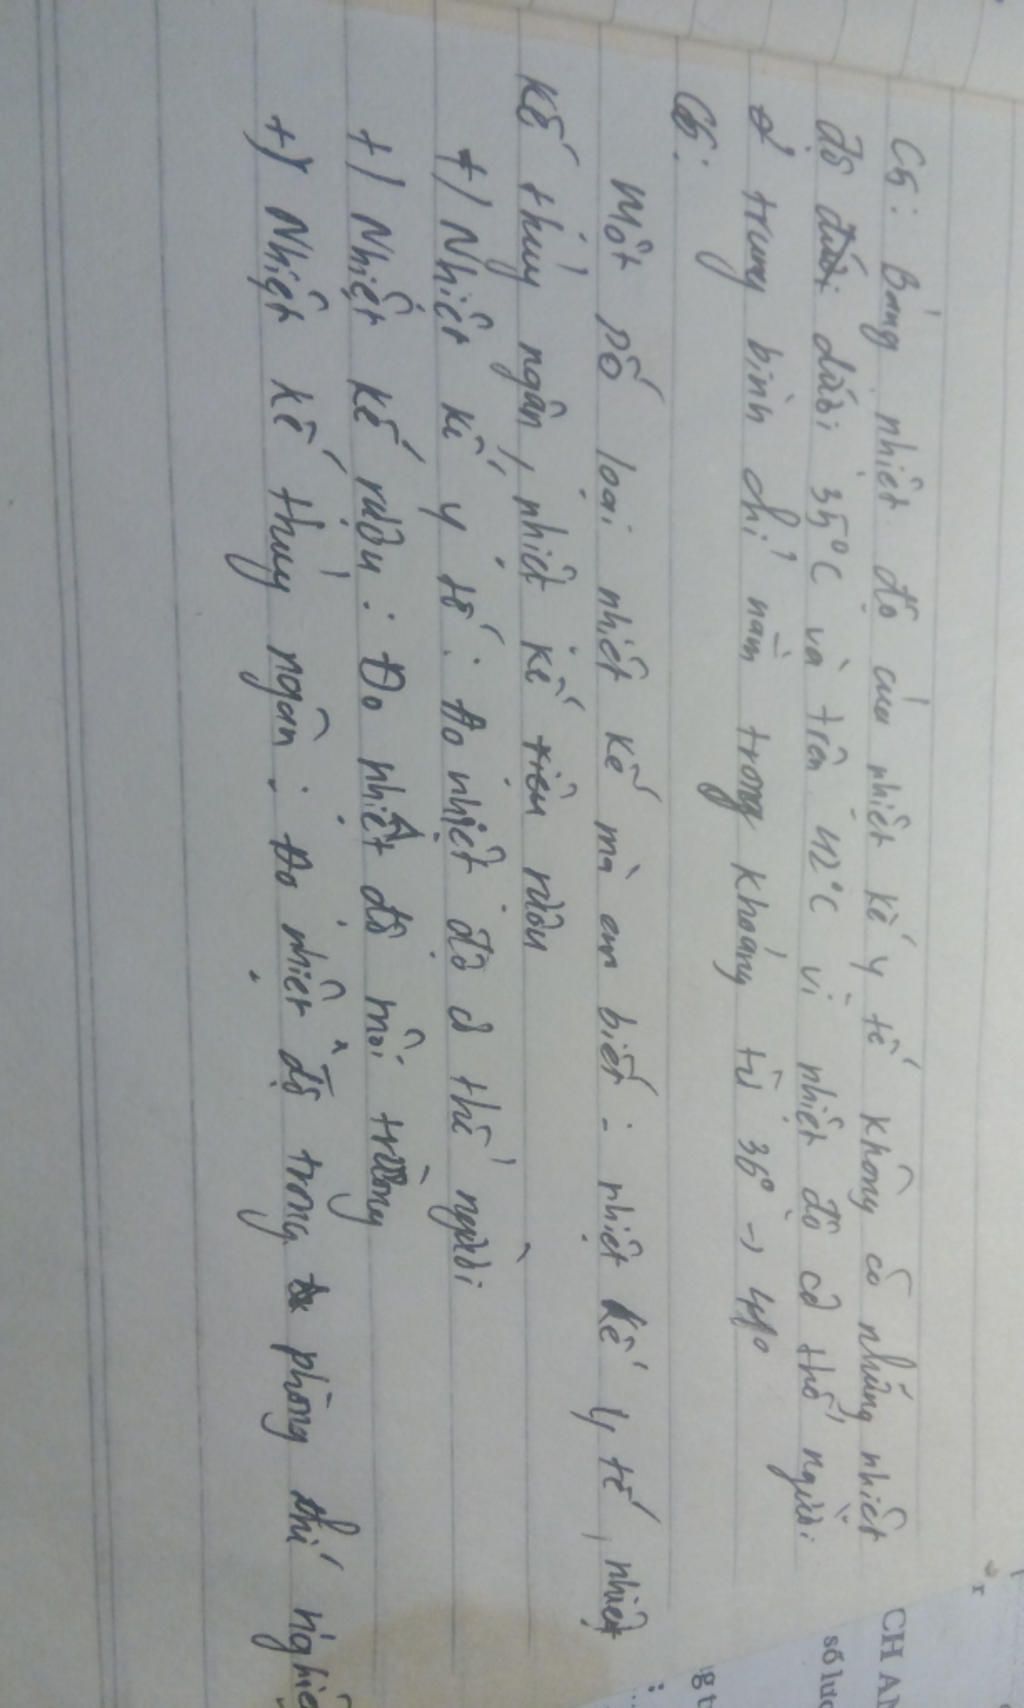 C5: Bảng nhiệt độ của nhiệt kế y tế không có những nhiệt
độ dưới 35°C và trên 42°C vì nhiệt độ cơ thể người
ở trung bình chỉ nằm trong khoảng từ 36° →
C6:
Một số loại nhiệt kế mà em biết: nhiệt kế y tế, nhiệt
kế thủy ngân, nhiệt kế rượu
+) Nhiệt kế y tế: Đo nhiệt độ cơ thể người
+) Nhiệt kế rượu: Đo nhiệt độ môi trường
+) Nhiệt kế thủy ngân: Đo nhiệt độ trong phòng thí nghiệ
CH A
số lượ
g t